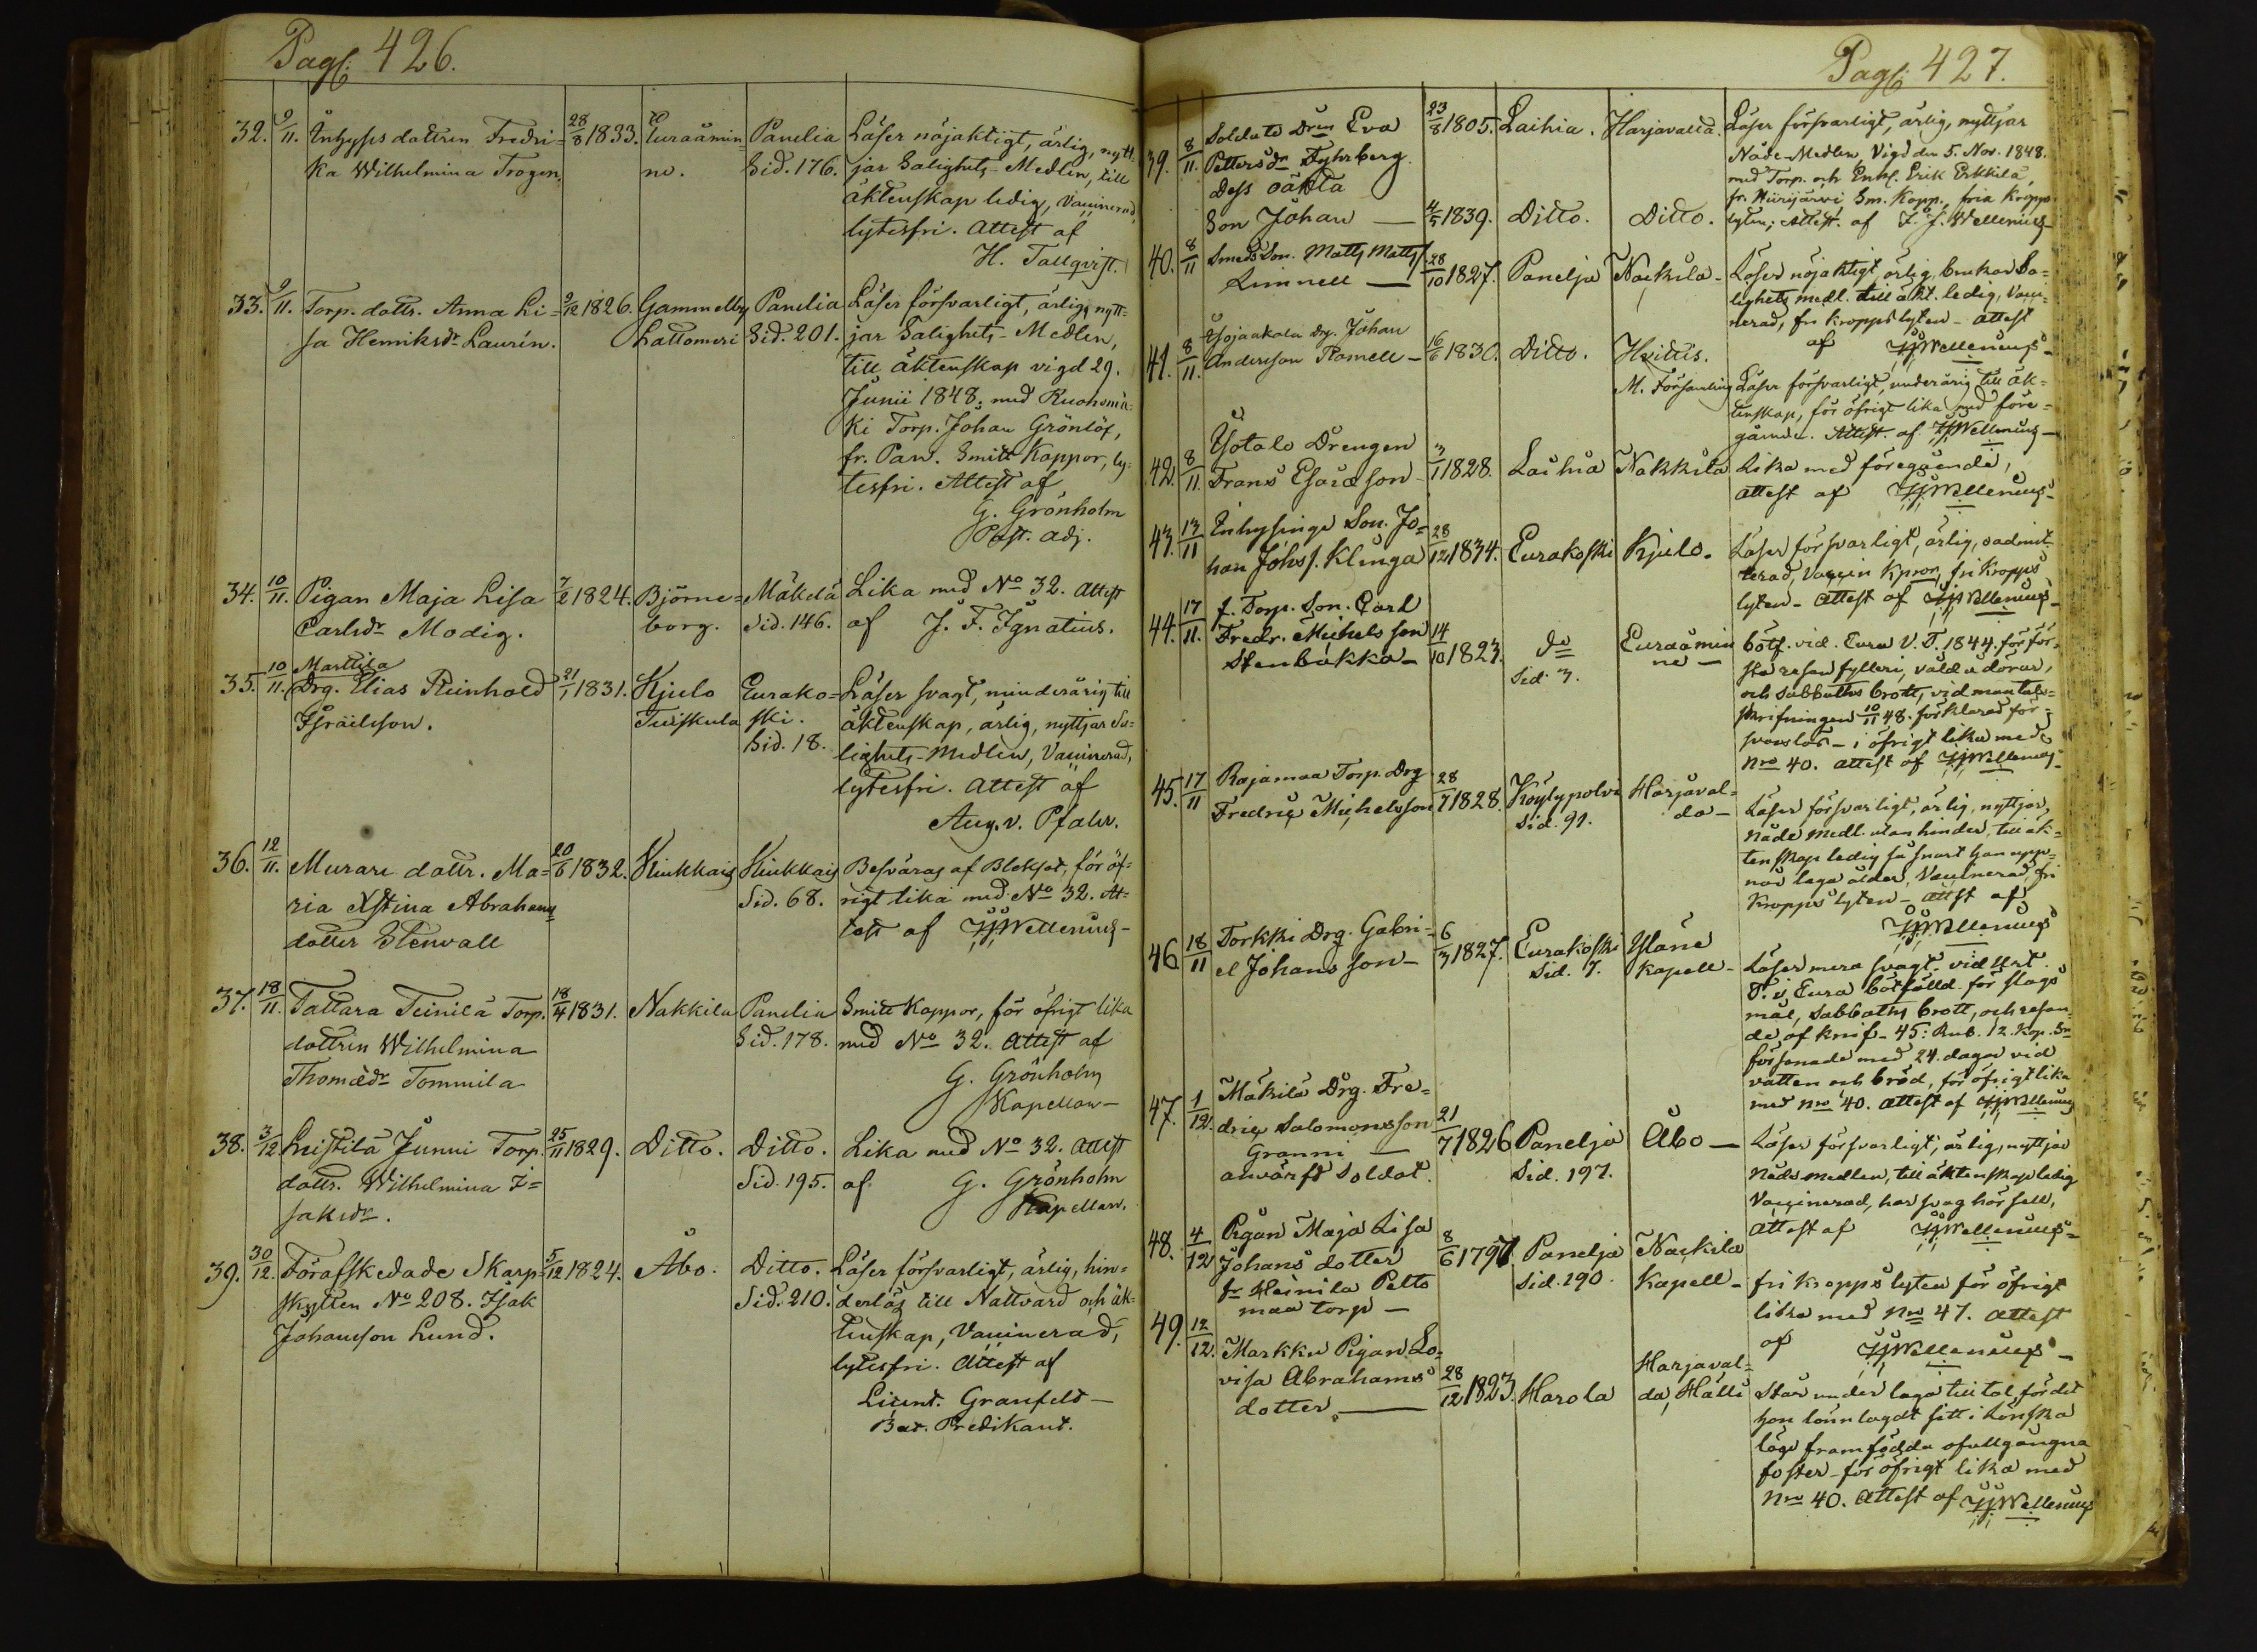 Pag: 426.
32. 9/11. Inhyses dottren Fredri=
ka Wilhelmina Trogen.
28/8 1833.
Euraåmin=
ne.
Panelia
Sid. 176.
Läser nöjaktigt, ärlig, nytt=
jar Salighets-Medlen, till
äktenskap ledig, Vaccinerad,
lytesfri. Attest af
H. Tallqvist.
33. 9/11. Torp. dottr. Anna Li=
sa Henriksdr Laurin.
9/12 1826.
Gammelby
Lattomeri
Panelia
Sid. 201.
Läser försvarligt, ärlig, nytt=
jar Salighets-Medlen,
till äktenskap vigd 29.
Junii 1848. med Ruohomä=
ki Torp. Johan Grönlöf,
fr. Pan. Smitt Koppor, ly=
tesfri. Attest af
G. Grönholm
Past. adj.
34. 10/11. Pigan Maja Lisa
Carlsdr Modig.
7/2 1824.
Björne=
borg.
Mäkelä
Sid. 146.
Lika med No 32. Attest
af J. F. Ignatius.
35. 10/11. Marttila
Drg. Elias Reinhold
Israelsson.
21/1 1831.
Kjulo
Tuiskula
Eurako=
ski.
Sid. 18.
Läser svagt, minderårig till
äktenskap, ärlig, nyttjar Sa=
lighets-Medlen, Vaccinerad,
lytesfri. Attest af
Aug. v. Pfaler.
36. 12/11. Murare dottr. Ma=
ria Xstina Abrahams
dotter Stenvall
20/6 1832.
Kiukkais
Kiukkais
Sid. 68.
Besväras af Bleksot, för öf=
rigt lika med No 32. At=
test af JJWellenius-
37. 18/11. Tattara Teinilä Torp.
dottren Wilhelmina
Thomædr Tommila
18/4 1831.
Nakkila
Panelia
Sid. 178.
Smitt Koppor, för öfrigt lika
med No 32. Attest af
G. Grönholm
Kapellan-
38. 3/12 Knistilä Junni Torp.
dottr. Wilhelmina I=
saksdr.
25/11 1829.
Ditto.
Ditto.
Sid. 195.
Lika med No 32. Attest
af G. Grönholm
Kapellan.
39. 30/12. Förafskedade Skarp=
skytten No 208. Isak
Johansson Lund.
5/12 1824.
Åbo.
Ditto.
Sid. 210.
Läser försvarligt, ärlig, hin=
derlös till Nattvard och äk=
tenskap, Vaccinerad,
lytesfri. Attest af
Licent. Granfelt-
Bat. Predikant.
Pag: 427.
39. 8/11. Soldats Drn Eva
Pettersdr Fyhrberg.
Dess oäkta
Son Johan —
23/8 1805.
4/5 1839.
Laihia.
Ditto.
Harjavalta.
Ditto.
Läser försvarligt, ärlig, nyttjar
Nåde-Medlen, Vigd den 5. Nov. 1848.
med Torp. och Enkl. Erik Erkkilä,
fr. Hvirijärvi, Sm. Kopp., fria kropps
lyten; Attest. af J. J. Wellenius-
40. 8/11 Smeds Son. Matts Matts.
Limnell —
28/10 1827.
Panelja
Nackila-
Läser nöjaktigt, ärlig, brukar Sa=
lighets medl. till äkt. ledig, Vacci=
nerad, fri kropps lyten - attest
af JJWellenius-
41. 8/11. Isojaakola Drg. Johan
Andersson Ramell -
16/6 1830.
Ditto.
Hvittis.
M. Församling
Läser försvarligt, underårig till äk=
tenskap, för öfrigt lika med före=
gående. Attest. af JJWellenius-
42. 8/11. Isotalo Drengen
Frans Esaiæson-
3/1 1828.
Laihia
Nakkila
Lika med föregående,
attest af JJWellenius-
43. 13/11 Inhysings Son. Jo=
han Johss. Klinga
28/12 1834.
Eurakoski
Kjulo.
Läser försvarligt, ärlig, oadmit=
terad, Vaccin Kpror, fri Kropps
lyten - attest af JJWellenius-
44. 17/11. f. Torp. Son. Carl
Fredr. Michelsson
Stenbäkka-
14/10 1823.
do
Sid. 3.
Euraåmin
ne-
Bötf. vid. Eura V. T. 1844. för för=
sta resan fylleri, våld å dörar,
och Sabbaths brott, vid mantals=
skrifningen 10/11 48. förklarad för=
svarslös - i öfrigt lika med
Nro 40. attest af JJWellenius-
45. 17/11 Rajamaa Torp. Drg
Fredric Michelsson
28/7 1828.
Köylypolvi
Sid. 91.
Harjaval=
da-
Läser försvarligt, ärlig, nyttjar
nåde medl. utan hinder, till äk=
tenskap ledig så snart han upp=
når laga ålder, Vaccinerad, fri
Kropps lyten - attest af
JJWellenius
46 18/11 Torkki Drg. Gabri=
el Johansson-
6/3 1827.
Eurakoski
Sid. 7.
Yläne
Kapell-
Läser mera svagt. vid Urt.
T. i Eura botfälld för slags
mål, Sabbaths brott, och resan
de af knif - 45: Rub. 12. Kop. Sr
försonade med 24. dagar vid
vatten och bröd, för öfrigt lika
med nro 40. attest af JJWellenius
47. 1/12. Mäkilä Drg. Fre=
dric Salomonsson
Granni —
anvärfd Soldat.
21/7 1826
Panelja
Sid. 197.
Åbo —
Läser försvarligt, ärlig, nyttjar
Nåde medlen, till äktenskap ledig
Vaccinerad, har svag hörsell,
Attest af JJWellenius-
48. 4/12 Pigan Maja Lisa
Johans dotter
fr Heinila Pelto
maa torp —
8/6 1797.
Panelja
Sid. 190.
Nackila
Kapell-
fri kropps lyten för öfrigt
lika med Nro 47. attest
af JJWellenius-
49. 12/12. Markku Pigan Lo=
visa Abrahams
dotter —
28/12 1823.
Harola
Harjaval=
da, Hälli
Står under laga till tal för det
hon lönnlagdt sitt i Lönska
läge framfödda ofullgångna
foster - för öfrigt lika med
Nro 40. Attest af JJWellenius